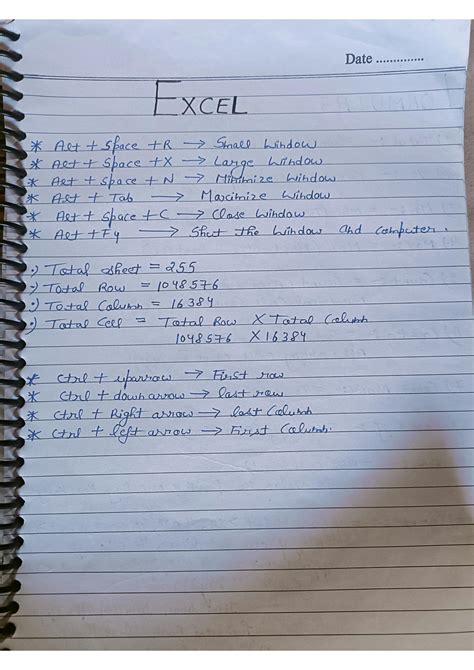 Date ..............
EXCEL
* Alt + Space + R → Small Window
* Alt + Space + X → Large Window
* Alt + Space + N → Minimize Window
* Alt + Tab → Maximize Window
* Alt + Space + C → Close Window
* Alt + F4 → Shut the Window and computer.
•) Total sheet = 255
•) Total Row = 1048576
•) Total Column = 16384
•) Total Cell = Total Row X Total Column
1048576 X 16384
* Ctrl + uparrow → First row
* Ctrl + down arrow → last row
* Ctrl + Right arrow → last Column
* Ctrl + left arrow → First Column.